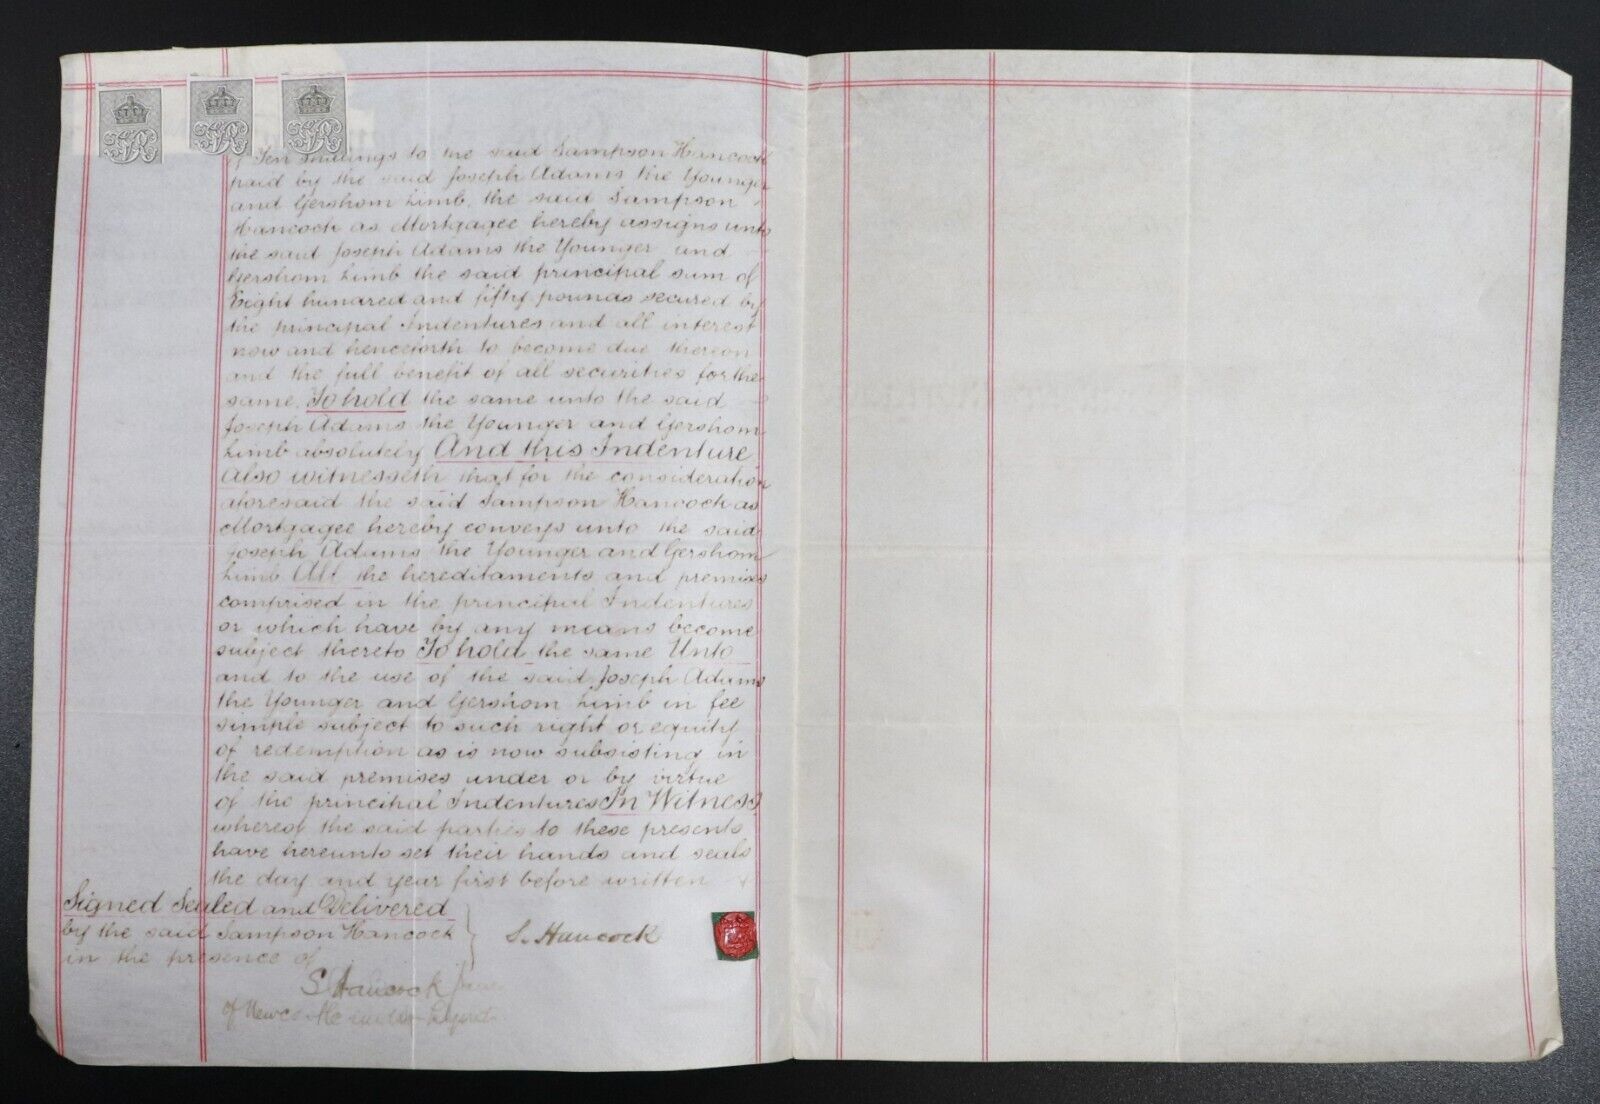 of Ten shillings to the said Sampson Hancock
paid by the said Joseph Adams the Younger
and Gershom Limb, the said Sampson
Hancock as Mortgagee hereby assigns unto
the said Joseph Adams the Younger and
Gershom Limb the said principal sum of
Eight hundred and fifty pounds secured by
the principal Indentures and all interest
now and henceforth to become due thereon
and the full benefit of all securities for the
same, To hold the same unto the said
Joseph Adams the Younger and Gershom
Limb absolutely And this Indenture
also witnesseth that for the consideration
aforesaid the said Sampson Hancock as
Mortgagee hereby conveys unto the said
Joseph Adams the Younger and Gershom
Limb All the hereditaments and premises
comprised in the principal Indentures
or which have by any means become
subject thereto To hold the same Unto
and to the use of the said Joseph Adams
the Younger and Gershom Limb in fee
simple subject to such right or equity
of redemption as is now subsisting in
the said premises under or by virtue
of the principal Indentures In Witness
whereof the said parties to these presents
have hereunto set their hands and seals
the day and year first before written
Signed Sealed and Delivered
by the said Sampson Hancock
in the presence of
S. Hancock
S Hancock
of